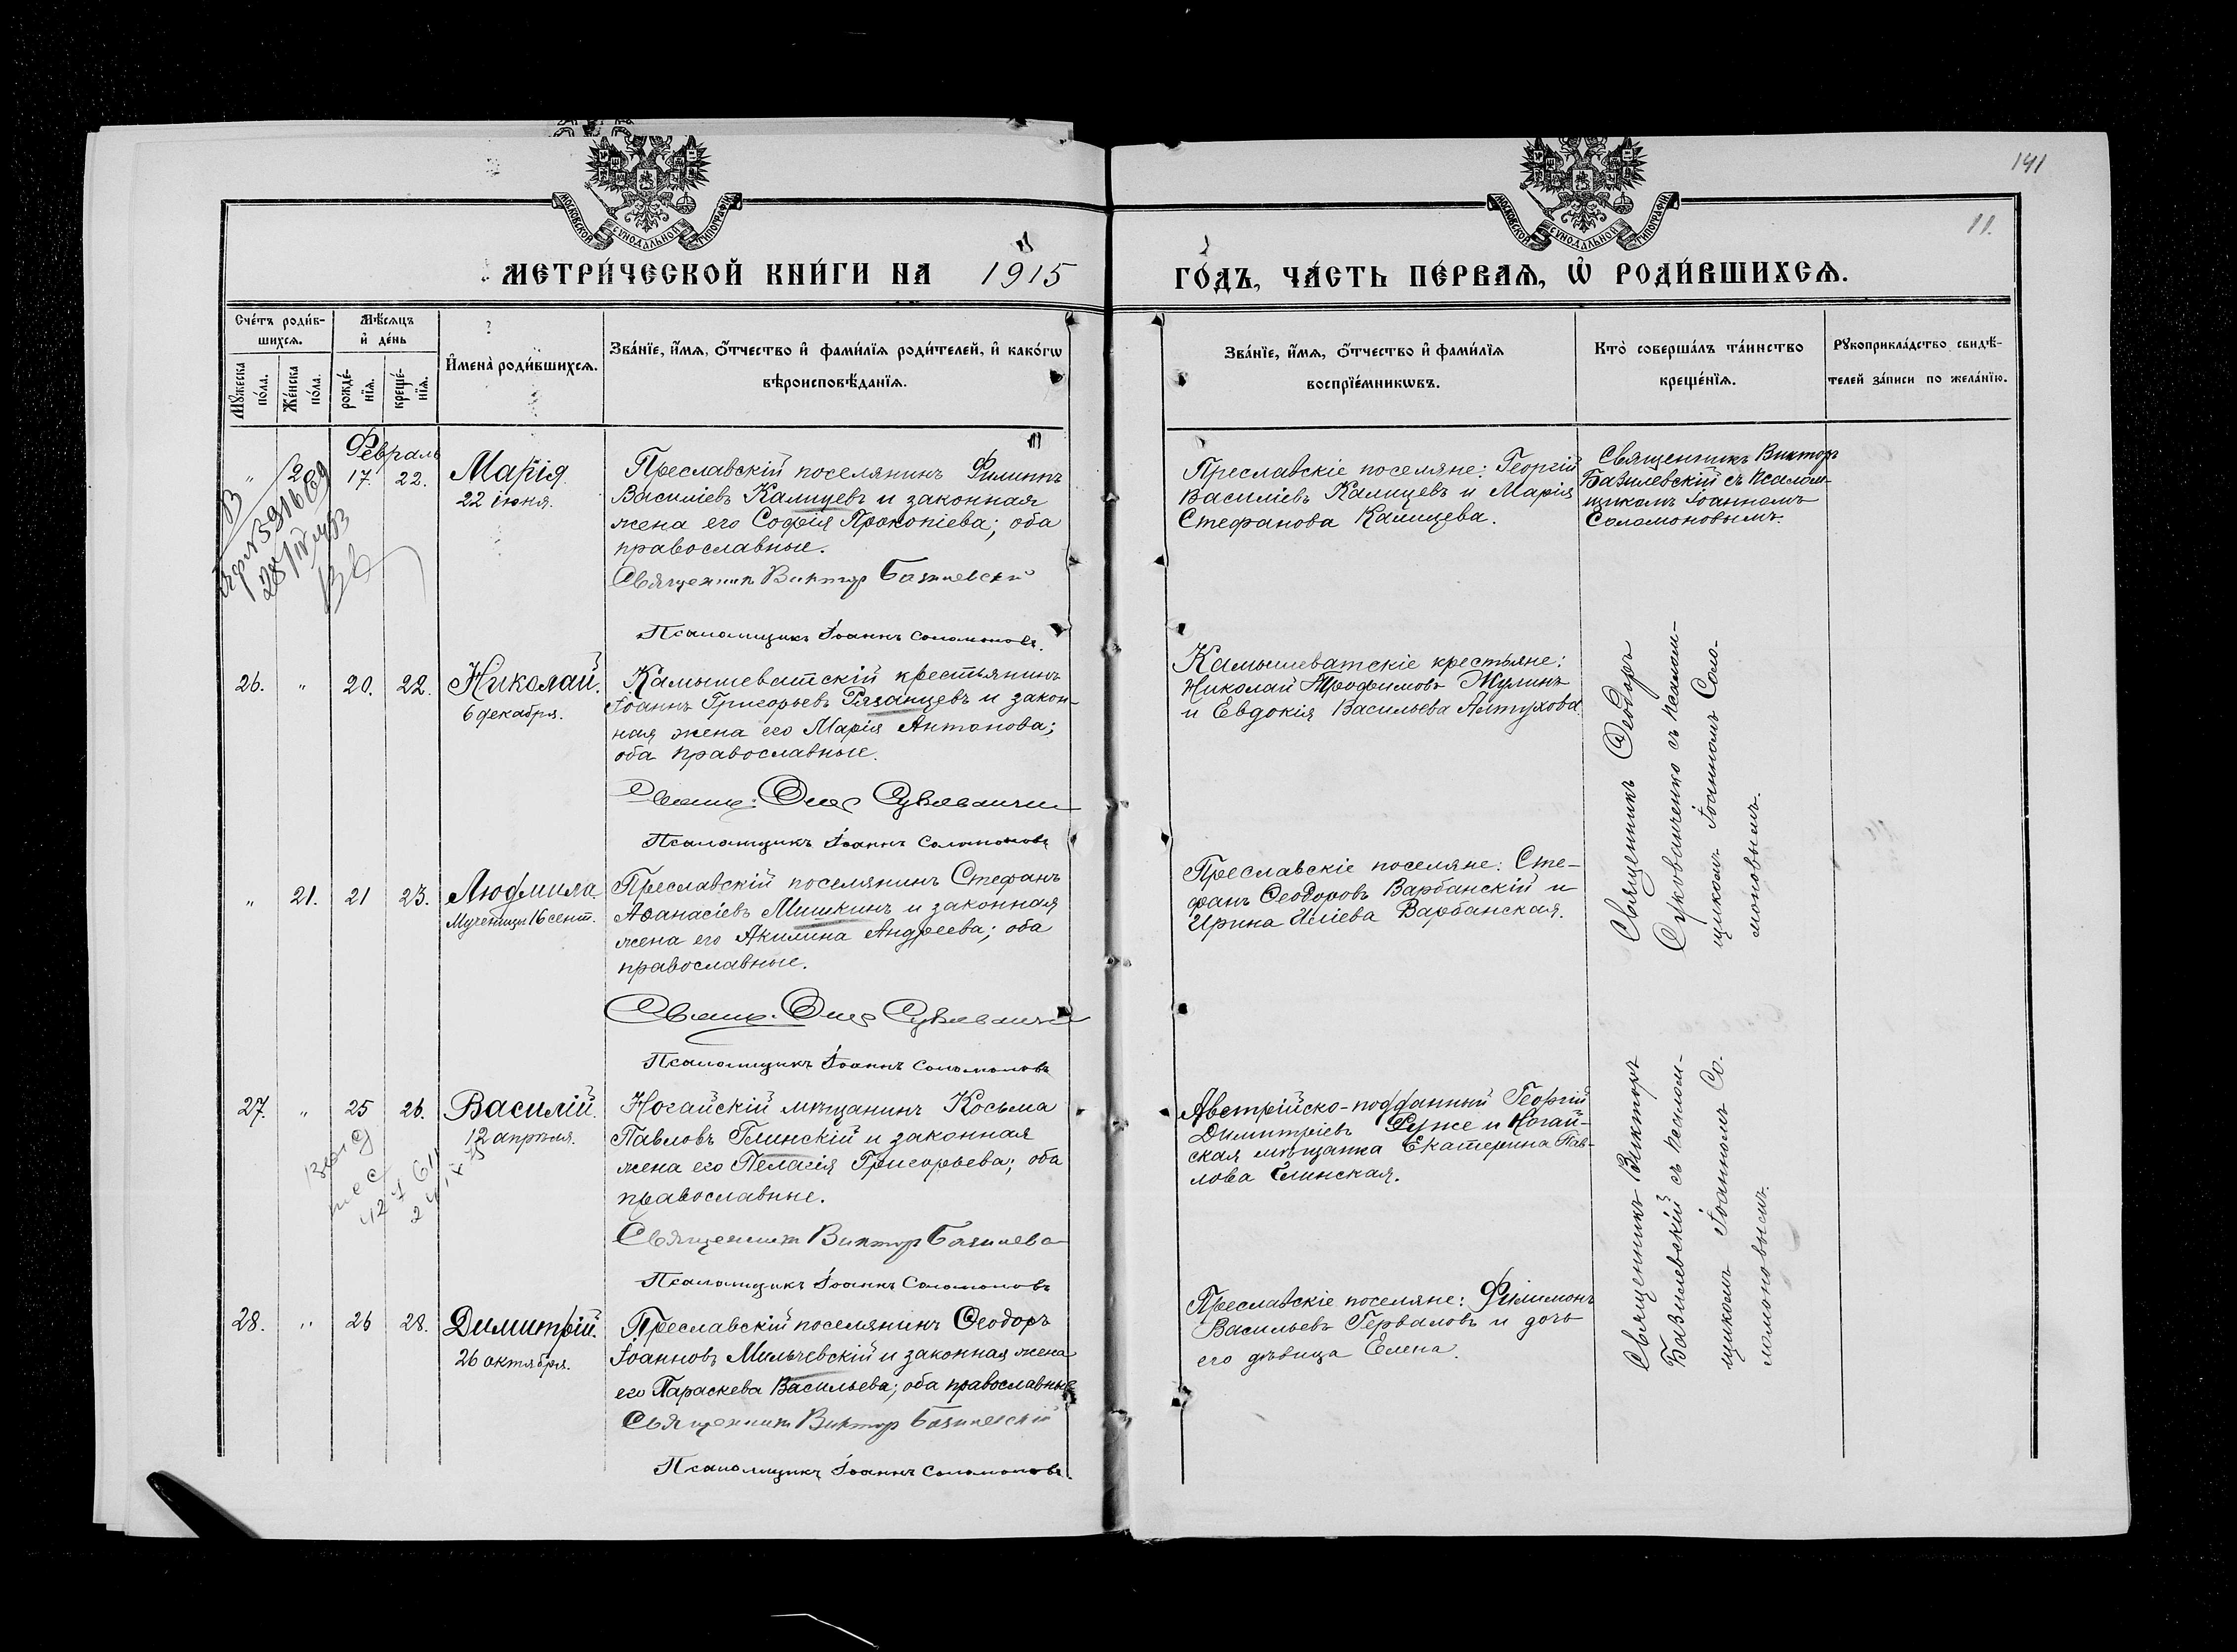 141
11.
МОСКОВСКОЙ СУНОДАЛЬНОЙ ТИПОГРАФІИ
МОСКОВСКОЙ СУНОДАЛЬНОЙ ТИПОГРАФІИ
МЕТРИ́ЧЕСКОЙ КНИ́ГИ НА 1915
ГО́ДЪ, ЧА́СТЬ ПЕ́РВАѦ, Ѡ҆ РОДИ́ВШИХСѦ.
Сче́тъ роди́в-
шихсѧ.
Мꙋ́жеска
по́ла.
Же́нска
по́ла.
Мѣ́сѧцъ
и҆ де́нь
рожде́-
нїѧ.
креще́-
нїѧ.
И҆мена̀ роди́вшихсѧ.
Зва́нїе, и҆́мѧ, ѻ҆́тчество и҆ фами́лїѧ роди́телей, и҆ како́гѡ
вѣроисповѣ́данїѧ.
Зва́нїе, и҆́мѧ, ѻ҆́тчество и҆ фами́лїѧ
воспрїе́мникѡвъ.
Кто̀ соверша́лъ та́инство
креще́нїѧ.
Рꙋкоприкла́дство свидѣ́-
телей за́писи по жела́нїю.
Февраль
" 20 17. 22. Марія
22 іюня.
Преславскій поселянинъ Филиппъ
Василіевъ Калицевъ и законная
жена его Софія Прокопіева; оба
православные.
Священникъ Викторъ Базилевскій
Псаломщикъ Іоаннъ Соломоновъ.
Преславскіе поселяне: Георгій
Василіевъ Калицевъ и Марія
Стефанова Калицева.
Священникъ Викторъ
Базилевскій съ псалом-
щикомъ Іоанномъ
Соломоновымъ.
28/IV
26. " 20. 22. Николай.
6 декабря.
Камышеватскій крестьянинъ
Іоаннъ Григорьевъ Рязанцевъ и закон-
ная жена его Марія Антонова;
оба православные.
Псаломщикъ Іоаннъ Соломоновъ
Камышеватскіе крестьяне:
Николай Трофимовъ Жулинъ
и Евдокія Васильева Алтухова.
Священникъ Ѳеодоръ
Сукованченко съ псалом-
щикомъ Іоанномъ Соло-
моновымъ.
" 21. 21 23. Людмила.
Мученицы 16 сент.
Преславскій поселянинъ Стефанъ
Аѳанасіевъ Мишкинъ и законная
жена его Акилина Андреева; оба
православные.
Псаломщикъ Іоаннъ Соломоновъ
Преславскіе поселяне: Сте-
фанъ Ѳеодоровъ Варбанскій и
Ирина Иліева Варбанская.
27. " 25 26. Василій.
12 апрѣля.
Ногайскій мѣщанинъ Косьма
Павловъ Глинскій и законная
жена его Пелагія Григорьева; оба
православные.
Священникъ Викторъ Базилевс
Псаломщикъ Іоаннъ Соломоновъ
Австрійско-подданный Георгій
Димитріевъ Руже и Ногай-
ская мѣщанка Екатерина Пав-
лова Глинская.
Священникъ Викторъ
Базилевскій съ псалом-
щикомъ Іоанномъ Со-
ломоновымъ.
28. " 26 28. Димитрій.
26 октября.
Преславскій поселянинъ Ѳеодоръ
Іоанновъ Мильчевскій и законная жена
его Параскева Васильева; оба православные
Священникъ Викторъ Базилевскій
Псаломщикъ Іоаннъ Соломоновъ.
Преславскіе поселяне: Филимонъ
Васильевъ Герваловъ и дочь
его дѣвица Елена.